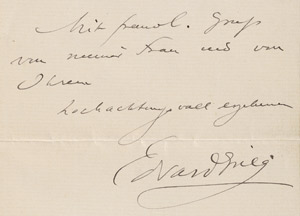 Mit freundl. Gruß
von meiner Frau und von
Ihrem
hochachtungsvoll ergebenen
Edvard Grieg